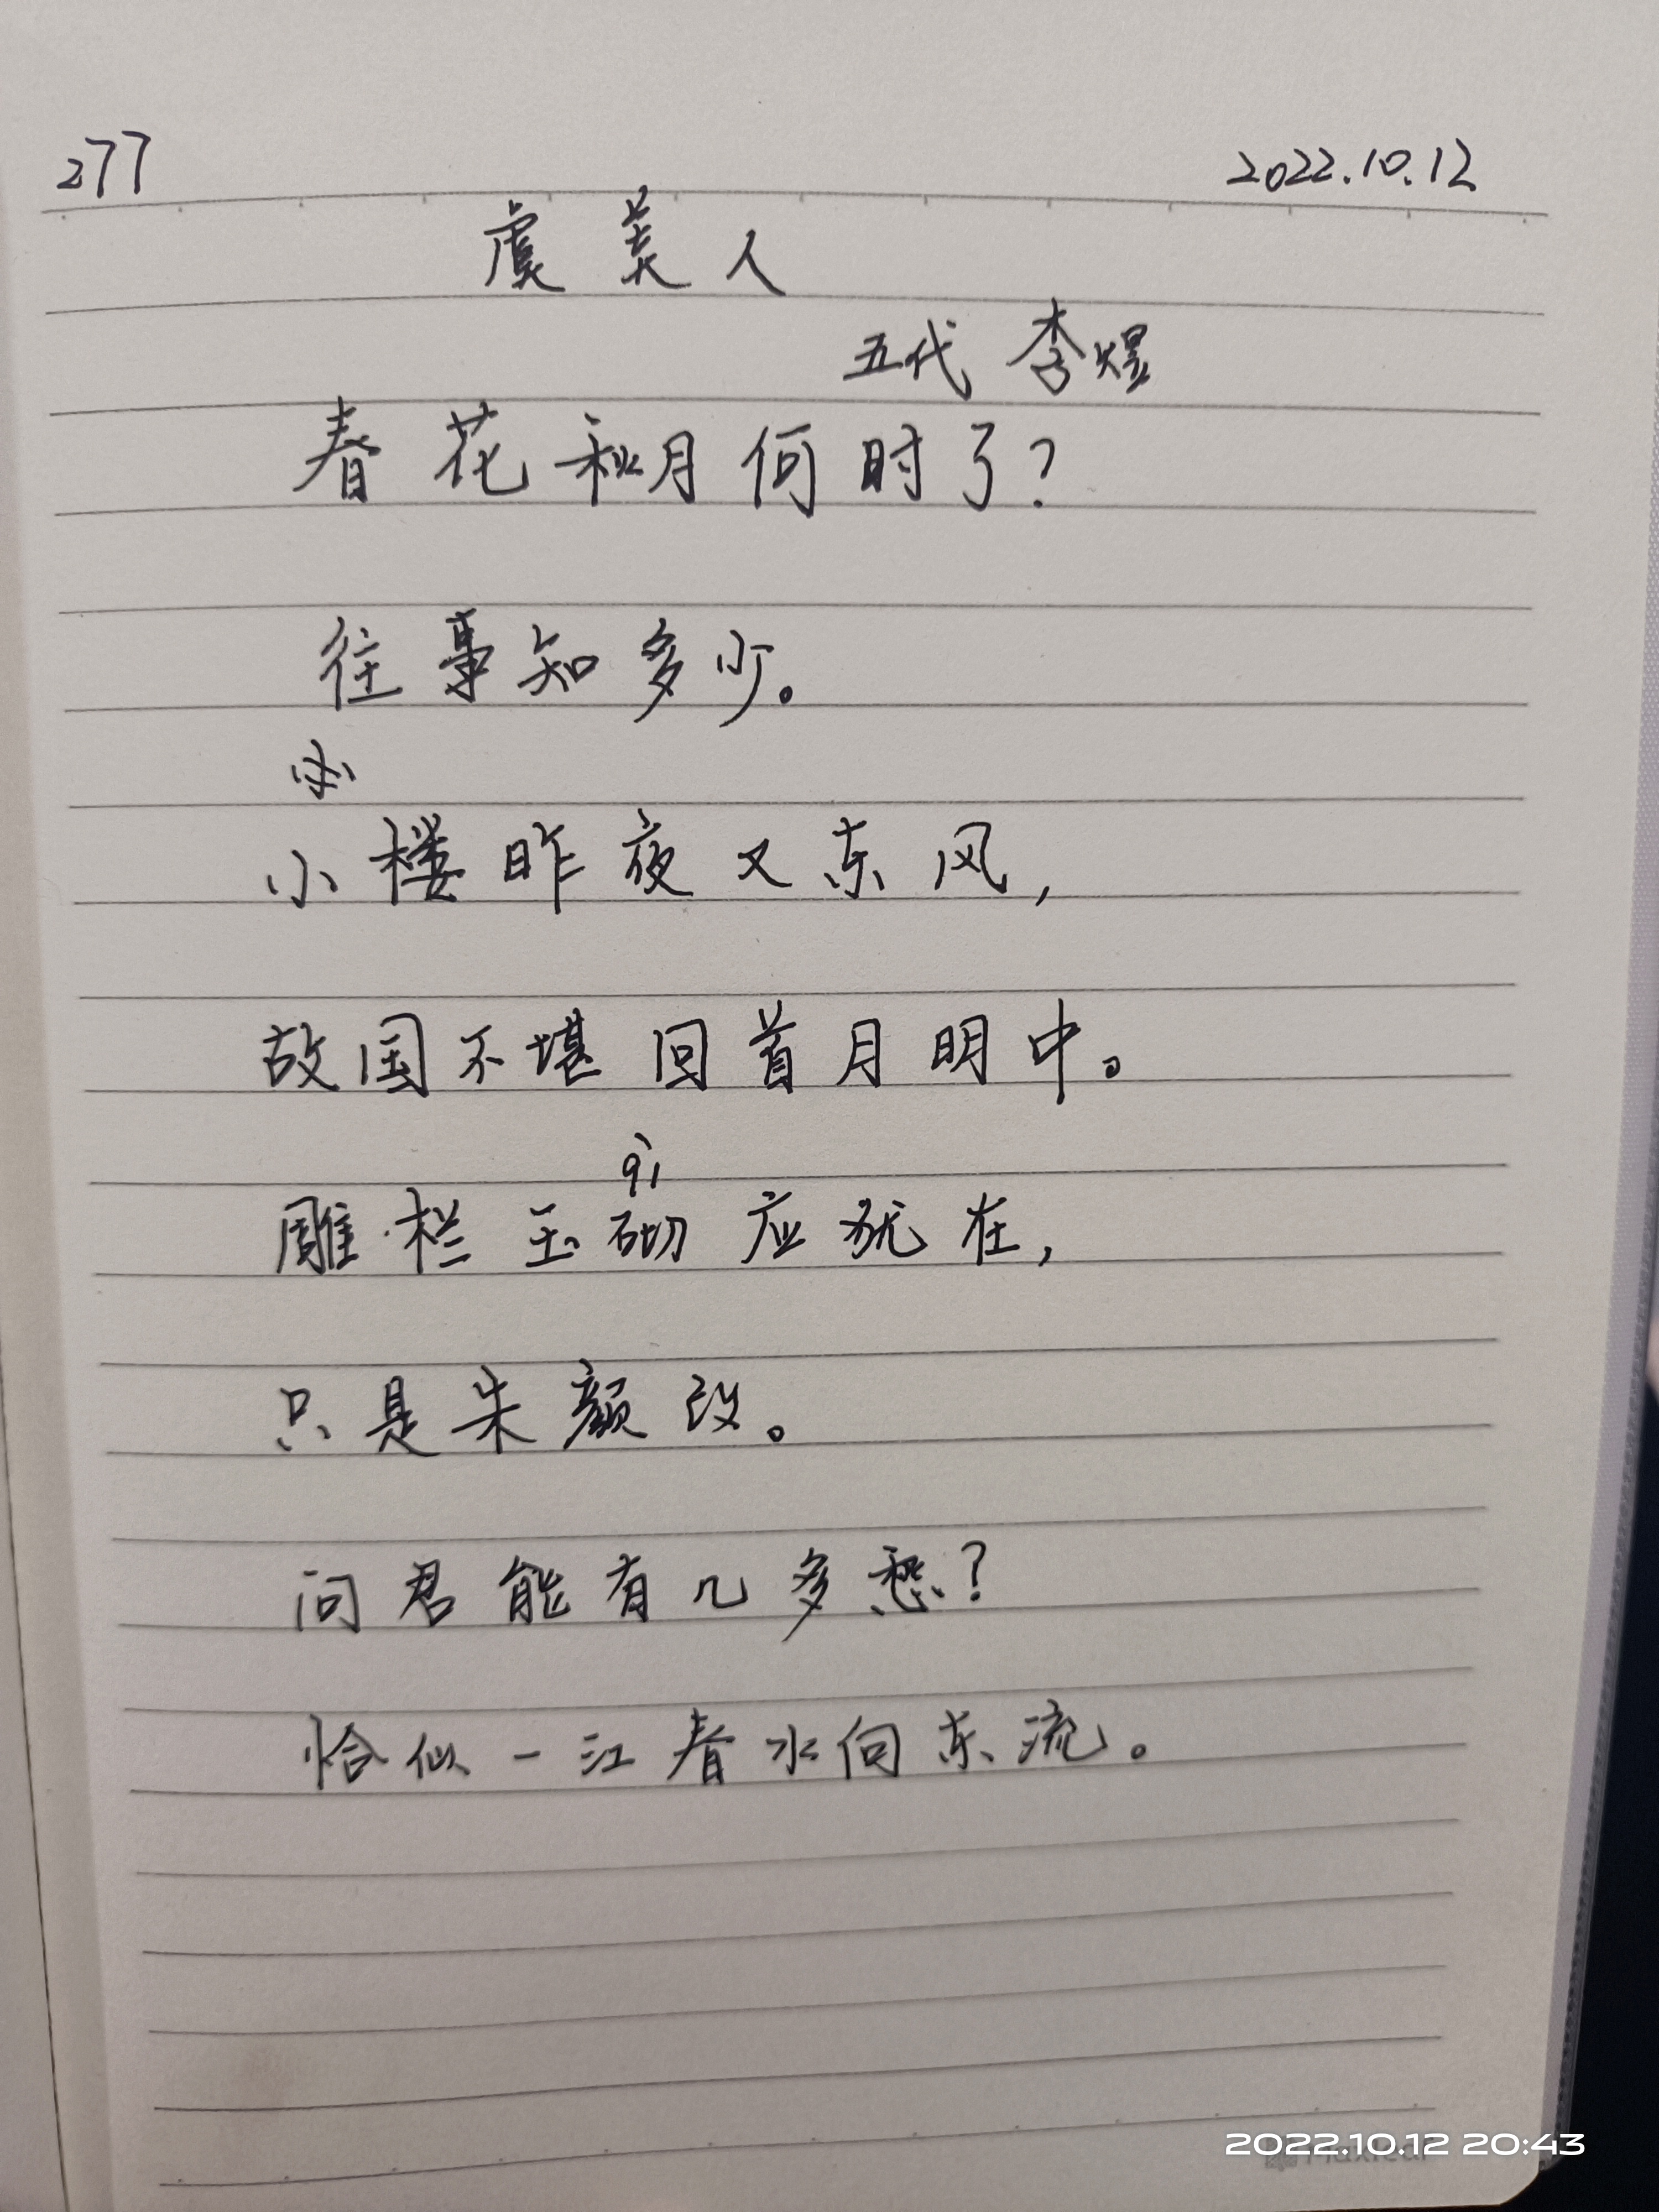 277 2022.10.12
虞美人
五代 李煜
春花秋月何时了?
往事知多少。
小楼昨夜又东风,
故国不堪回首月明中。
qì
雕栏玉砌应犹在,
只是朱颜改。
问君能有几多愁?
恰似一江春水向东流。
2022.10.12 20:43